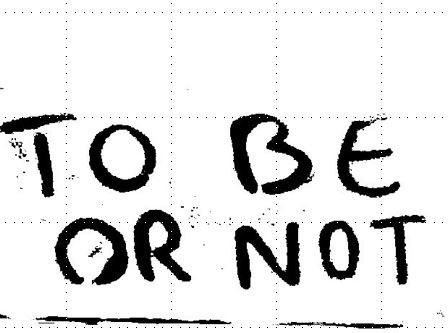 TO BE
OR NOT